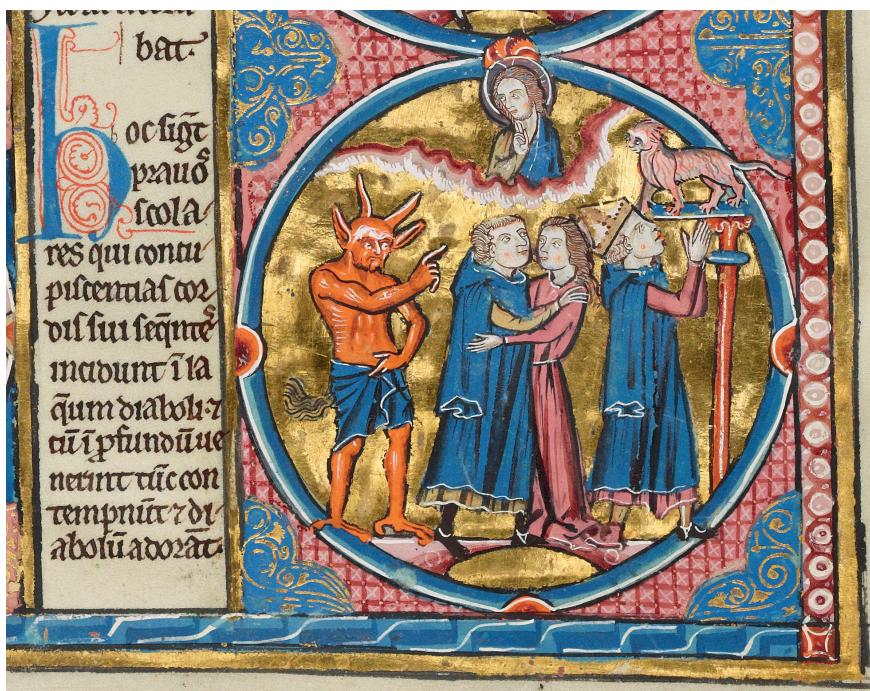 bat·
hoc sig̃t
prauoˢ
scola
res qui concu
piscentias cor
dis sui seq̃nteˢ
incidunt ĩ la
q̃um diaboli· ⁊
cũ ĩ ꝓfundũ ue
nerint tũc con
tempnũt ⁊ di
abolũ adorãt·